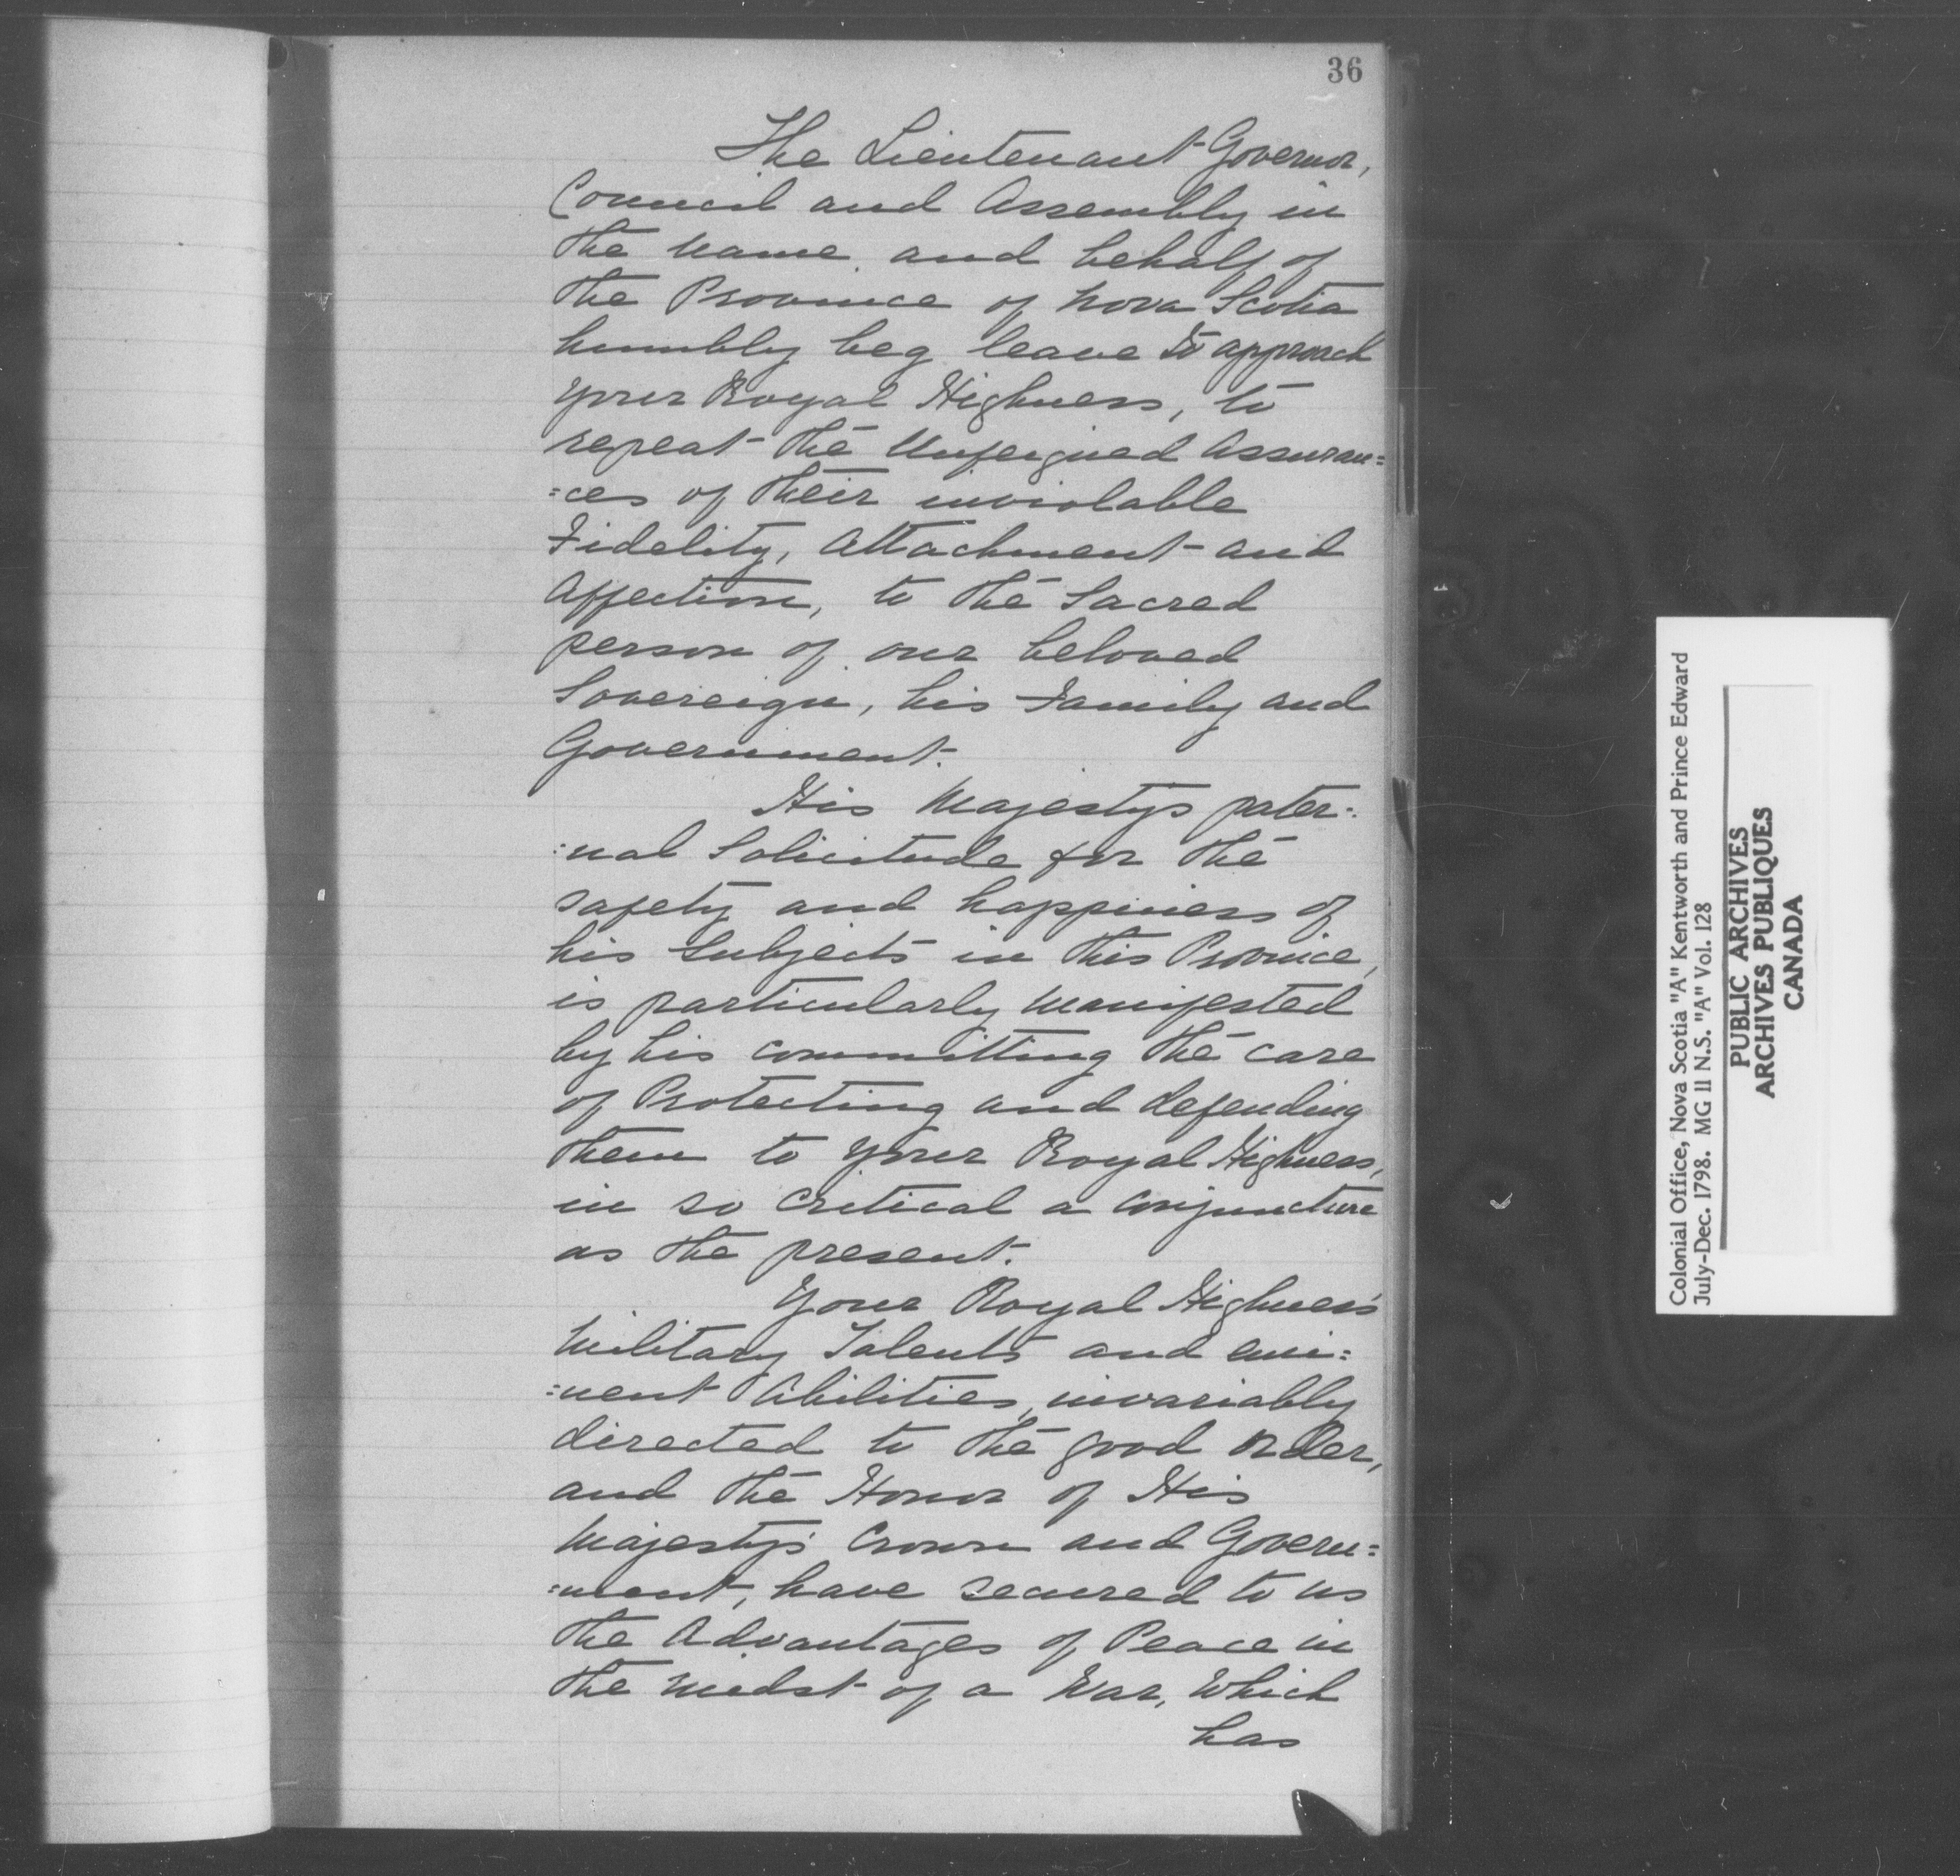 36
The Lieutenant-Governor,
Council and Assembly in
the Name and behalf of
the Province of Nova Scotia
humbly beg leave to approach
your Royal Highness, to
repeat the Unfeigned Assuran=
=ces of their inviolable
Fidelity, Attachment and
Affection, to the Sacred
person of our beloved
Sovereign, his Family and
Government.
His Majesty's pater=
=nal Solicitude for the
safety and happiness of
his Subjects in this Province,
is particularly manifested
by his committing the care
of Protecting and defending
them to your Royal Highness,
in so critical a conjuncture
as the present.
Your Royal Highness
Military Talents and emi=
=nent Abilities, invariably
directed to the good order,
and the Honor of His
Majesty's Crown and Govern=
=ment, have secured to us
the Advantages of Peace in
the midst of a War, which
has
Colonial Office, Nova Scotia "A" Kentworth and Prince Edward
July-Dec. 1798. MG 11 N.S. "A" Vol. 128
PUBLIC ARCHIVES
ARCHIVES PUBLIQUES
CANADA